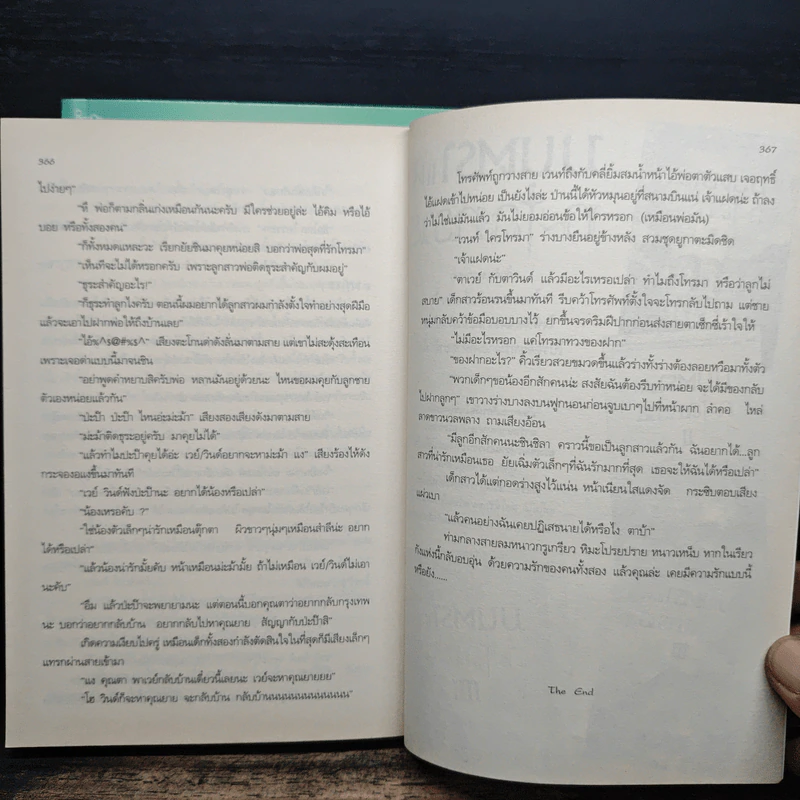 366
ไปง่ายๆ"
"หึ พ่อก็ตามกลิ่นเก่งเหมือนกันนะครับ มีใครช่วยอยู่ล่ะ ไอ้คิม หรือไอ้
บอย หรือทั้งสองคน"
"ก็ทั้งหมดแหละวะ เรียกยัยซินมาคุยหน่อยสิ บอกว่าพ่อสุดที่รักโทรมา"
"เห็นทีจะไม่ได้หรอกครับ เพราะลูกสาวพ่อติดธุระสำคัญกับผมอยู่"
"ธุระสำคัญอะไร!"
"ก็ธุระทำลูกไงครับ ตอนนี้ผมอยากได้ลูกสาวผมกำลังตั้งใจทำอย่างสุดฝีมือ
แล้วจะเอาไปฝากพ่อให้ถึงบ้านเลย"
เสียงตะโกนด่าดังลั่นมาตามสาย แต่เขาไม่สะดุ้งสะเทือน
เพราะเจอด่าแบบนี้มาจนชิน
"อย่าพูดคำหยาบสิครับพ่อ หลานมันอยู่ด้วยนะ ไหนขอผมคุยกับลูกชาย
ตัวเองหน่อยแล้วกัน"
"ปะป๊า ปะป๊า ไหนอ่ะม่ะม้า" เสียงสองเสียงดังมาตามสาย
"ม่ะม้าติดธุระอยู่ครับ มาคุยไม่ได้"
"แล้วทำไมปะป๊าคุยได้อ่ะ เวย์/วินด์อยากจะหาม่ะม้า แง" เสียงร้องไห้ดัง
กระจองอแงขึ้นมาทันที
"เวย์ วินด์ฟังปะป๊านะ อยากได้น้องหรือเปล่า"
"น้องเหรอคับ ?"
"ใช่น้องตัวเล็กๆน่ารักเหมือนตุ๊กตา ผิวขาวๆนุ่มๆเหมือนสำลีน่ะ อยาก
ได้หรือเปล่า"
"แล้วน้องน่ารักมั้ยคับ หน้าเหมือนม่ะม้ามั้ย ถ้าไม่เหมือน เวย์/วินด์ไม่เอา
นะคับ"
"อืม แล้วปะป๊าจะพยายามนะ แต่ตอนนี้บอกคุณตาว่าอยากกลับกรุงเทพ
นะ บอกว่าอยากกลับบ้าน อยากกลับไปหาคุณยาย สัญญากับปะป๊าสิ"
เกิดความเงียบไปครู่ เหมือนเด็กทั้งสองกำลังตัดสินใจในที่สุดก็มีเสียงเล็กๆ
แทรกผ่านสายเข้ามา
"แง คุณตา พาเวย์กลับบ้านเดี๋ยวนี้เลยนะ เวย์จะหาคุณยายยย"
"โฮ วินด์ก็จะหาคุณยาย จะกลับบ้าน กลับบ้านนนนนนนนนนนน"
367
โทรศัพท์ถูกวางสาย เวนท์ถึงกับคลี่ยิ้มสมน้ำหน้าไอ้พ่อตาตัวแสบ เจอฤทธิ์
ไอ้แฝดเข้าไปหน่อย เป็นยังไงล่ะ ป่านนี้ได้หัวหมุนอยู่ที่สนามบินแน่ เจ้าแฝดน่ะ ถ้าลง
ว่าไม่ใช่แม่มันแล้ว มันไม่ยอมอ่อนข้อให้ใครหรอก (เหมือนพ่อมัน)
"เวนท์ ใครโทรมา" ร่างบางยืนอยู่ข้างหลัง สวมชุดยูกาตะมิดชิด
"เจ้าแฝดน่ะ"
"ตาเวย์ กับตาวินด์ แล้วมีอะไรเหรอเปล่า ทำไมถึงโทรมา หรือว่าลูกไม่
สบาย" เด็กสาวร้อนรนขึ้นมาทันที รีบคว้าโทรศัพท์ตั้งใจจะโทรกลับไปถาม แต่ชาย
หนุ่มกลับคว้าข้อมือบอบบางไว้ ยกขึ้นจรดริมฝีปากก่อนส่งสายตาเซ็กซี่เร้าใจให้
"ไม่มีอะไรหรอก แค่โทรมาทวงของฝาก"
"ของฝากอะไร?" คิ้วเรียวสวยขมวดขึ้นแล้วร่างทั้งร่างต้องลอยหวือมาทั้งตัว
"พวกเด็กๆขอน้องอีกสักคนน่ะ สงสัยฉันต้องรีบทำหน่อย จะได้มีของกลับ
ไปฝากลูกๆ" เขาวางร่างบางลงบนฟูกนอนก่อนจูบเบาๆไปที่หน้าผาก ลำคอ ไหล่
ลาดขาวนวลพลาง ถามเสียงอ้อน
"มีลูกอีกสักคนนะซินซิลา คราวนี้ขอเป็นลูกสาวแล้วกัน ฉันอยากได้...ลูก
สาวที่น่ารักเหมือนเธอ ยัยเฉิ่มตัวเล็กๆที่ฉันรักมากที่สุด เธอจะให้ฉันได้หรือเปล่า"
เด็กสาวได้แต่กอดร่างสูงไว้แน่น หน้าเนียนใสแดงจัด กระซิบตอบเสียง
แผ่วเบา
"แล้วคนอย่างฉันเคยปฏิเสธนายได้หรือไง ตาบ้า"
ท่ามกลางสายลมหนาวกรูเกรียว หิมะโปรยปราย หนาวเหน็บ หากในเรียว
กังแห่งนี้กลับอบอุ่น ด้วยความรักของคนทั้งสอง แล้วคุณล่ะ เคยมีความรักแบบนี้
หรือยัง......
The End